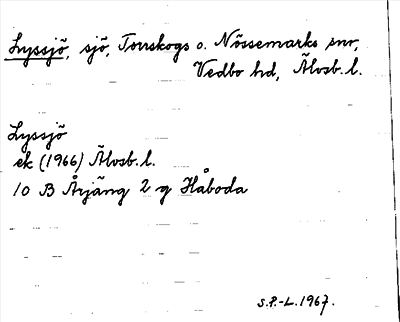 Lyssjö, sjö, Torrskogs o. Nössemarks snr,
Vedbo hd, Älvsb. l.
Lyssjö
ek (1966) Älvsb. l.
10 B Årjäng 2 g Håboda
S.P.-L. 1967.